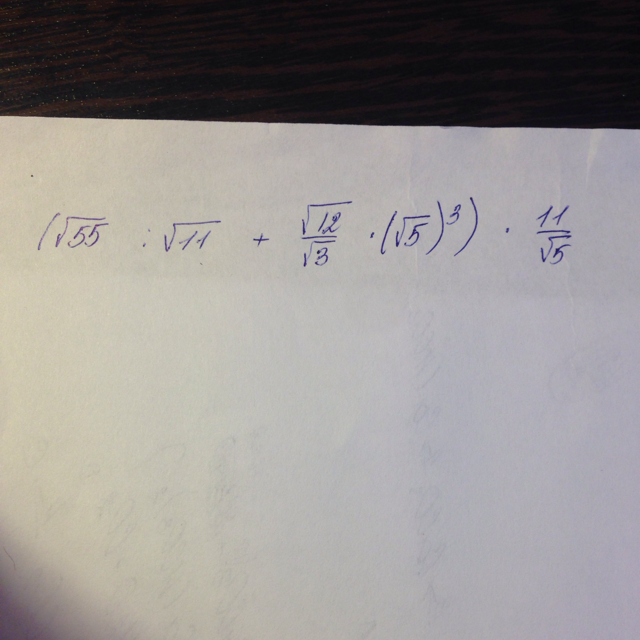 (√55 : √11 + √12/√3 · (√5)³) · 11/√5